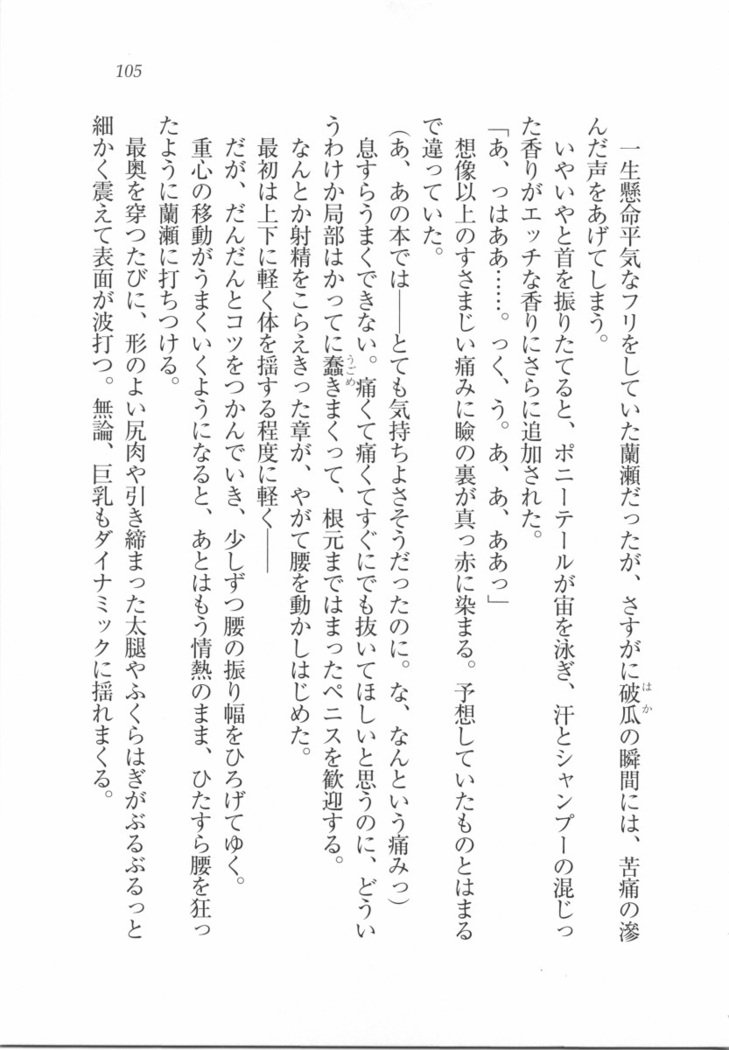 105
一生懸命平気なフリをしていた蘭瀬だったが、さすがに破瓜の瞬間には、苦痛の滲
はか
んだ声をあげてしまう。
いやいやと首を振りたてると、ポニーテールが宙を泳ぎ、汗とシャンプーの混じっ
た香りがエッチな香りにさらに追加された。
「あ、っはああ……。っく、う。あ、あ、ああっ」
想像以上のすさまじい痛みに瞼の裏が真っ赤に染まる。予想していたものとはまる
で違っていた。
（あ、あの本では――とても気持ちよさそうだったのに。な、なんという痛みっ）
息すらうまくできない。痛くて痛くてすぐにでも抜いてほしいと思うのに、どうい
うわけか局部はかってに蠢きまくって、根元まではまったペニスを歓迎する。
うごめ
なんとか射精をこらえきった章が、やがて腰を動かしはじめた。
最初は上下に軽く体を揺する程度に軽く――
だが、だんだんとコツをつかんでいき、少しずつ腰の振り幅をひろげてゆく。
重心の移動がうまくいくようになると、あとはもう情熱のまま、ひたすら腰を狂っ
たように蘭瀬に打ちつける。
最奥を穿つたびに、形のよい尻肉や引き締まった太腿やふくらはぎがぶるぶるっと
細かく震えて表面が波打つ。無論、巨乳もダイナミックに揺れまくる。